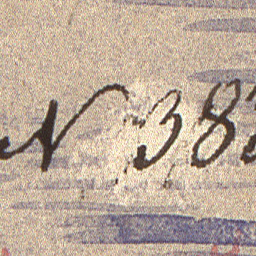 N 38